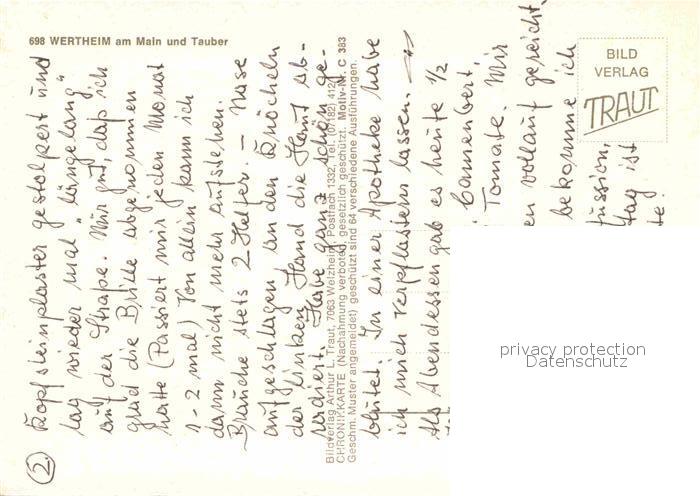 698 WERTHEIM am Main und Tauber
BILD
VERLAG
TRAUT
Kopfsteinplaster gestolpert und
lag wieder mal "längelang"
auf der Straße. Nur gut, daß ich
grad die Brille abgenommen
hatte (Passiert mir jeden Monat
1-2 mal) Von allein kann ich
dann nicht mehr aufstehen.
Brauche stets 2 Helfer. – Nase
aufgeschlagen an den Knöcheln
der linken Hand die Haut ab-
radiert. Habe ganz schön ge-
blutet. In einer Apotheke habe
ich mich verpflastern lassen. —
Als Abendessen gab es heute 1/2
Camenbert,
Tomate. Mir
en vollauf gereicht.
bekomme ich
fusion,
tag ist
te!
2.
Bildverlag Arthur L. Traut, 7063 Welzheim, Postfach 1332, Tel. (07182) 412
CHRONIKKARTE (Nachahmung verboten, gesetzlich geschützt. Motiv-Nr. C 383
Geschm. Muster angemeldet) geschützt sind 64 verschiedene Ausführungen.
privacy protection
Datenschutz